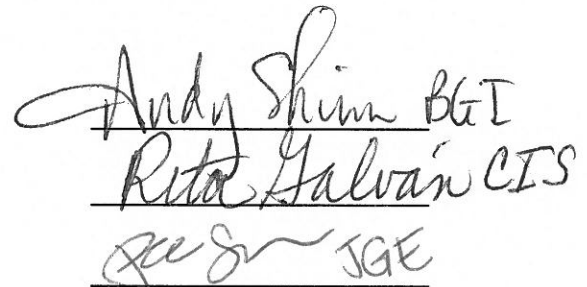 Andy Shinn BGI
Rita Galván CIS
JGE